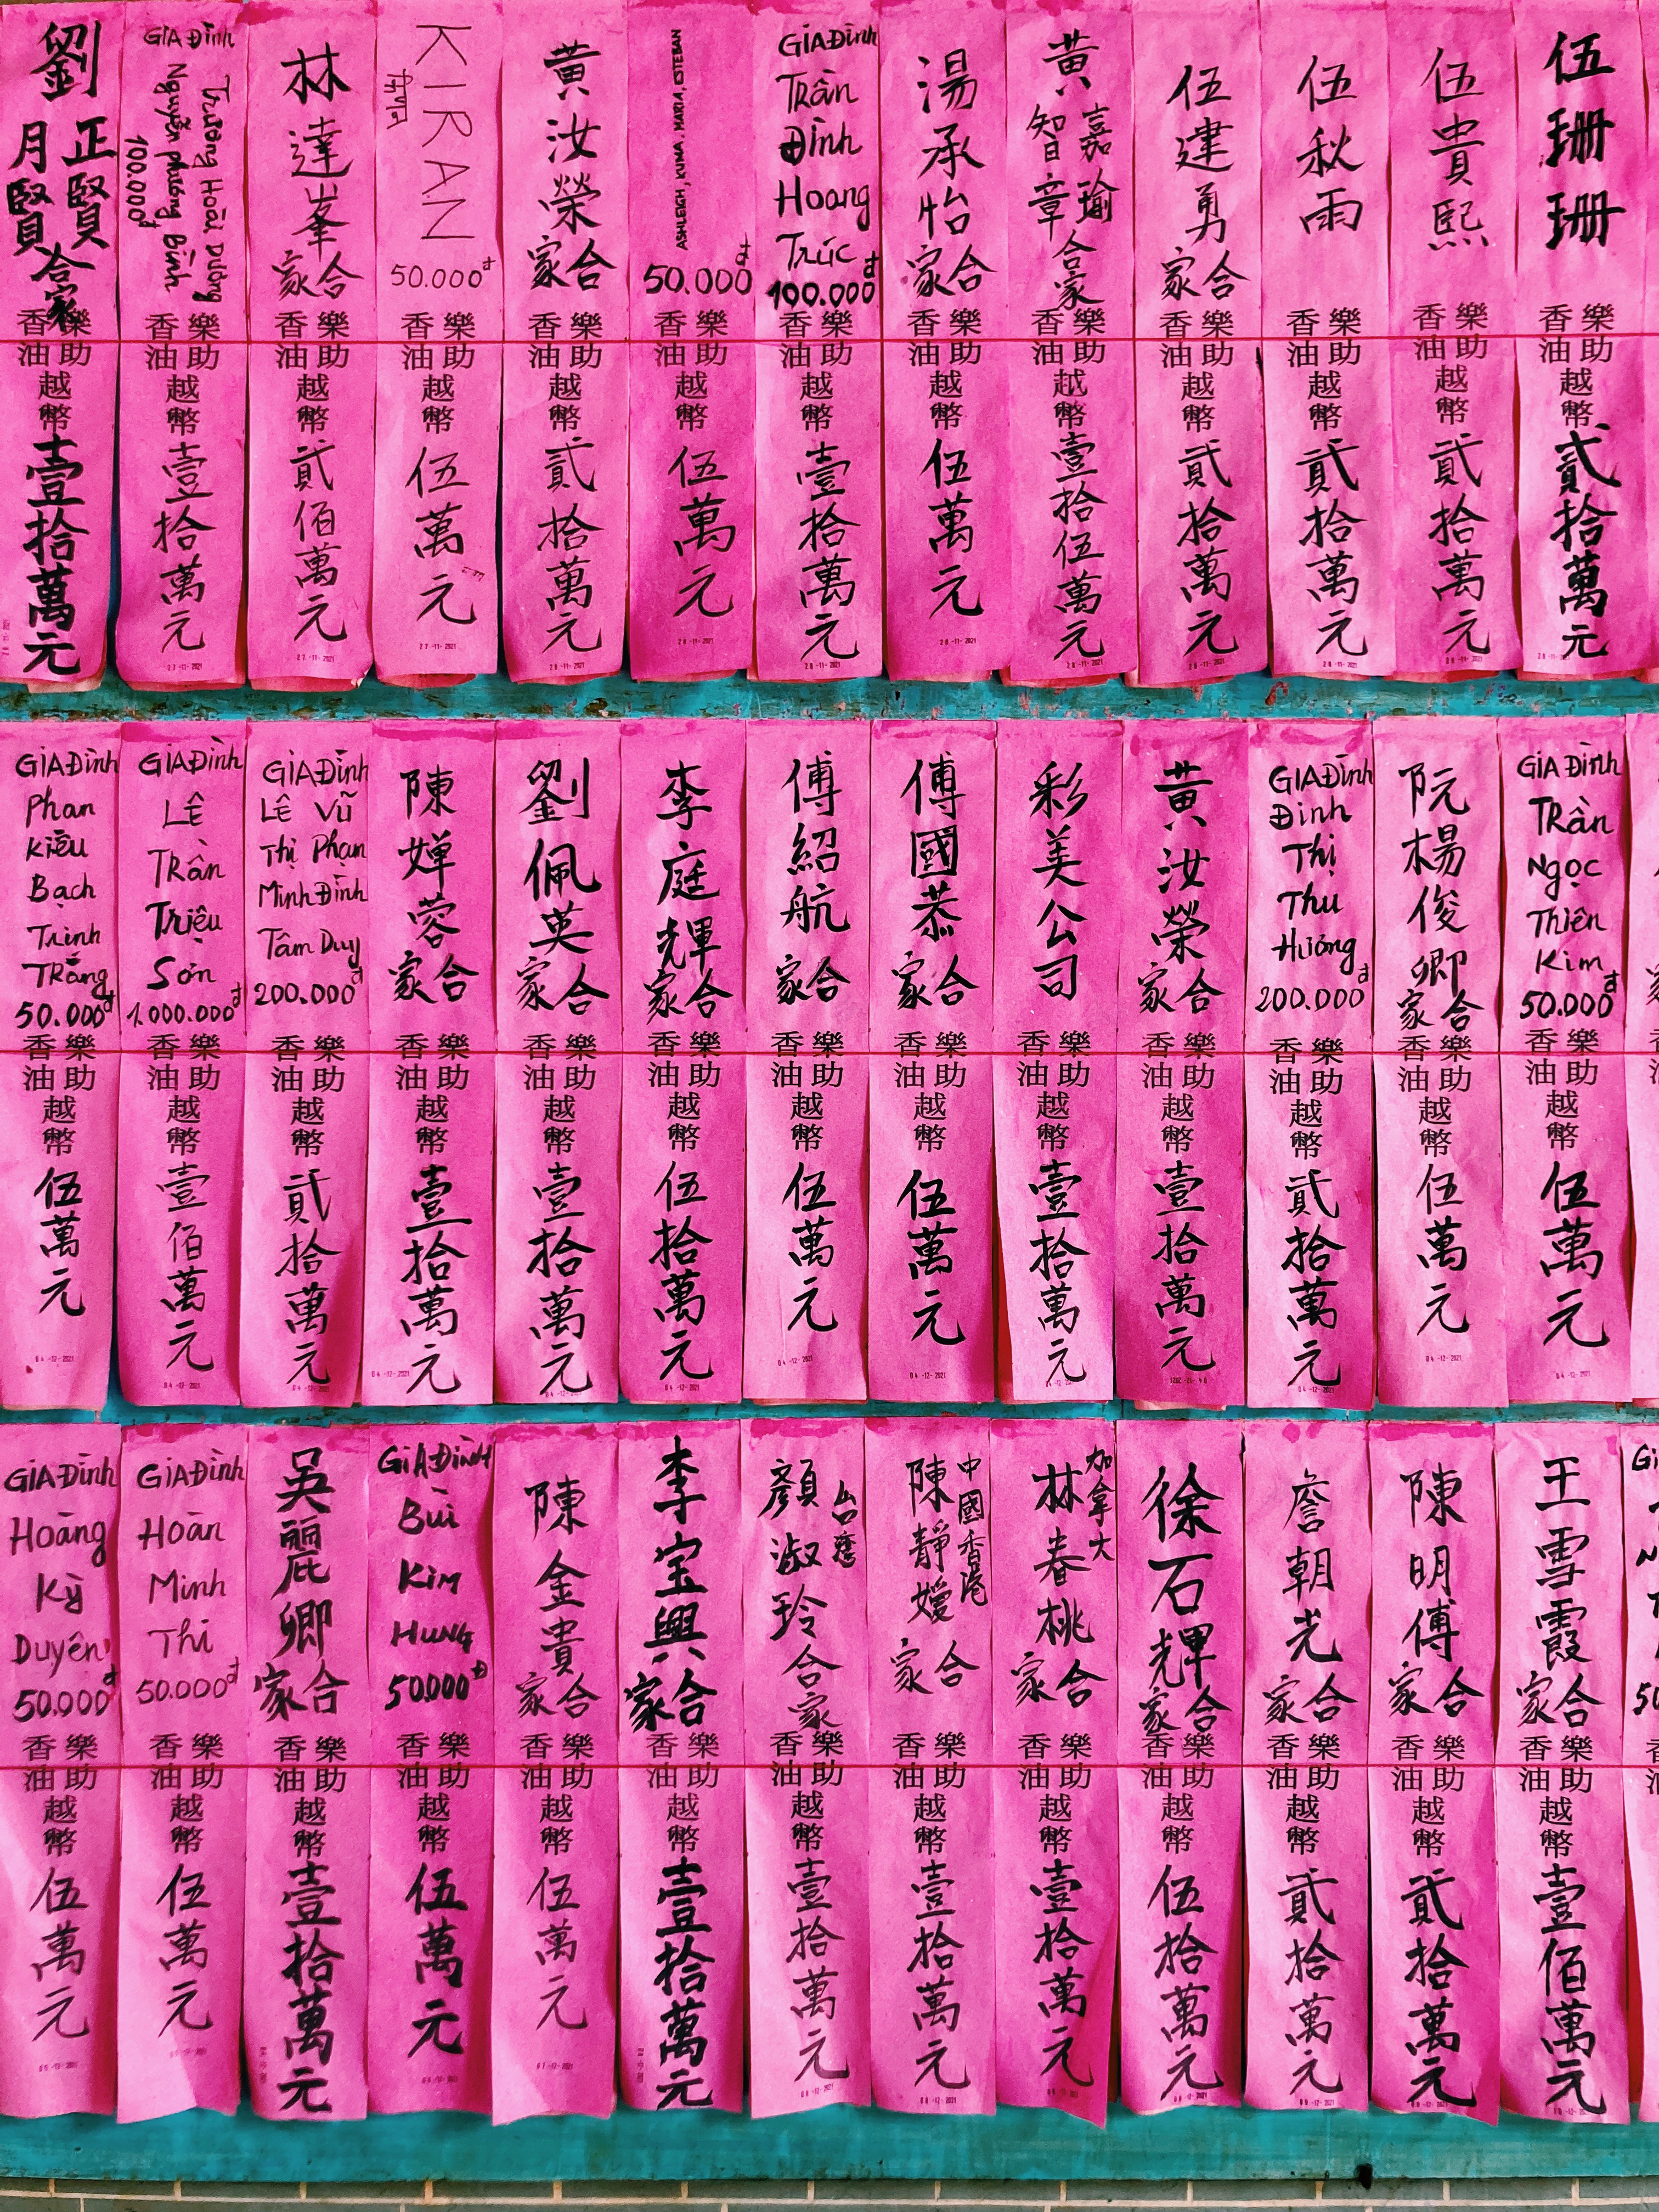 劉正賢月賢合家
樂助香油越幣壹拾萬元
GIA Đình
Trương Hoài Dương
Nguyễn Phương Bình
100.000đ
樂助香油越幣壹拾萬元
27-11-2021
林達峯合家
樂助香油越幣貳佰萬元
27-11-2021
KIRAN
50.000đ
樂助香油越幣伍萬元
27-11-2021
黃汝榮合家
樂助香油越幣貳拾萬元
28-11-2021
ASHLEIGH, KUMA, MARIA, ESTEBAN
50.000đ
樂助香油越幣伍萬元
28-11-2021
GIA Đình
Trần
Đình
Hoang
Trúc
100.000đ
樂助香油越幣壹拾萬元
28-11-2021
湯承怡合家
樂助香油越幣伍萬元
28-11-2021
黃嘉瑜智章合家
樂助香油越幣壹拾伍萬元
28-11-2021
伍建勇合家
樂助香油越幣貳拾萬元
28-11-2021
伍秋雨
樂助香油越幣貳拾萬元
28-11-2021
伍貴熙
樂助香油越幣貳拾萬元
伍珊珊
樂助香油越幣貳拾萬元
GIA Đình
Phan
Kiều
Bạch
Trinh
Trắng
50.000đ
樂助香油越幣伍萬元
04-12-2021
GIA Đình
LÊ
Trần
Triệu
Sơn
1.000.000đ
樂助香油越幣壹佰萬元
04-12-2021
GIA Đình
LÊ Vũ
Thị Phạn
Minh Đình
Tâm Duy
200.000đ
樂助香油越幣貳拾萬元
04-12-2021
陳嬋蓉合家
樂助香油越幣壹拾萬元
04-12-2021
劉佩英合家
樂助香油越幣壹拾萬元
李庭輝合家
樂助香油越幣伍拾萬元
04-12-2021
傅紹航合家
樂助香油越幣伍萬元
04-12-2021
傅國恭合家
樂助香油越幣伍萬元
04-12-2021
彩美公司
樂助香油越幣壹拾萬元
黃汝榮合家
樂助香油越幣壹拾萬元
GIA Đình
Đinh
Thị
Thu
Hương
200.000đ
樂助香油越幣貳拾萬元
04-12-2021
阮楊俊卿合家
樂助香油越幣伍萬元
04-12-2021
GIA Đình
Trần
Ngọc
Thiên
Kim
50.000đ
樂助香油越幣伍萬元
04-12-2021
GIA Đình
Hoàng
Kỳ
Duyên
50.000đ
樂助香油越幣伍萬元
GIA Đình
Hoàn
Minh
Thi
50.000đ
樂助香油越幣伍萬元
吳麗卿合家
樂助香油越幣壹拾萬元
GIA Đình
Bùi
Kim
HUNG
50.000đ
樂助香油越幣伍萬元
陳金貴合家
樂助香油越幣伍萬元
07-12-2021
李宝興合家
樂助香油越幣壹拾萬元
台灣
顏淑玲合家
樂助香油越幣壹拾萬元
08-12-2021
中國香港
陳靜嫒合家
樂助香油越幣壹拾萬元
08-12-2021
加拿大
林春桃合家
樂助香油越幣壹拾萬元
徐石輝合家
樂助香油越幣伍拾萬元
詹朝光合家
樂助香油越幣貳拾萬元
陳明傅合家
樂助香油越幣貳拾萬元
王雪霞合家
樂助香油越幣壹佰萬元